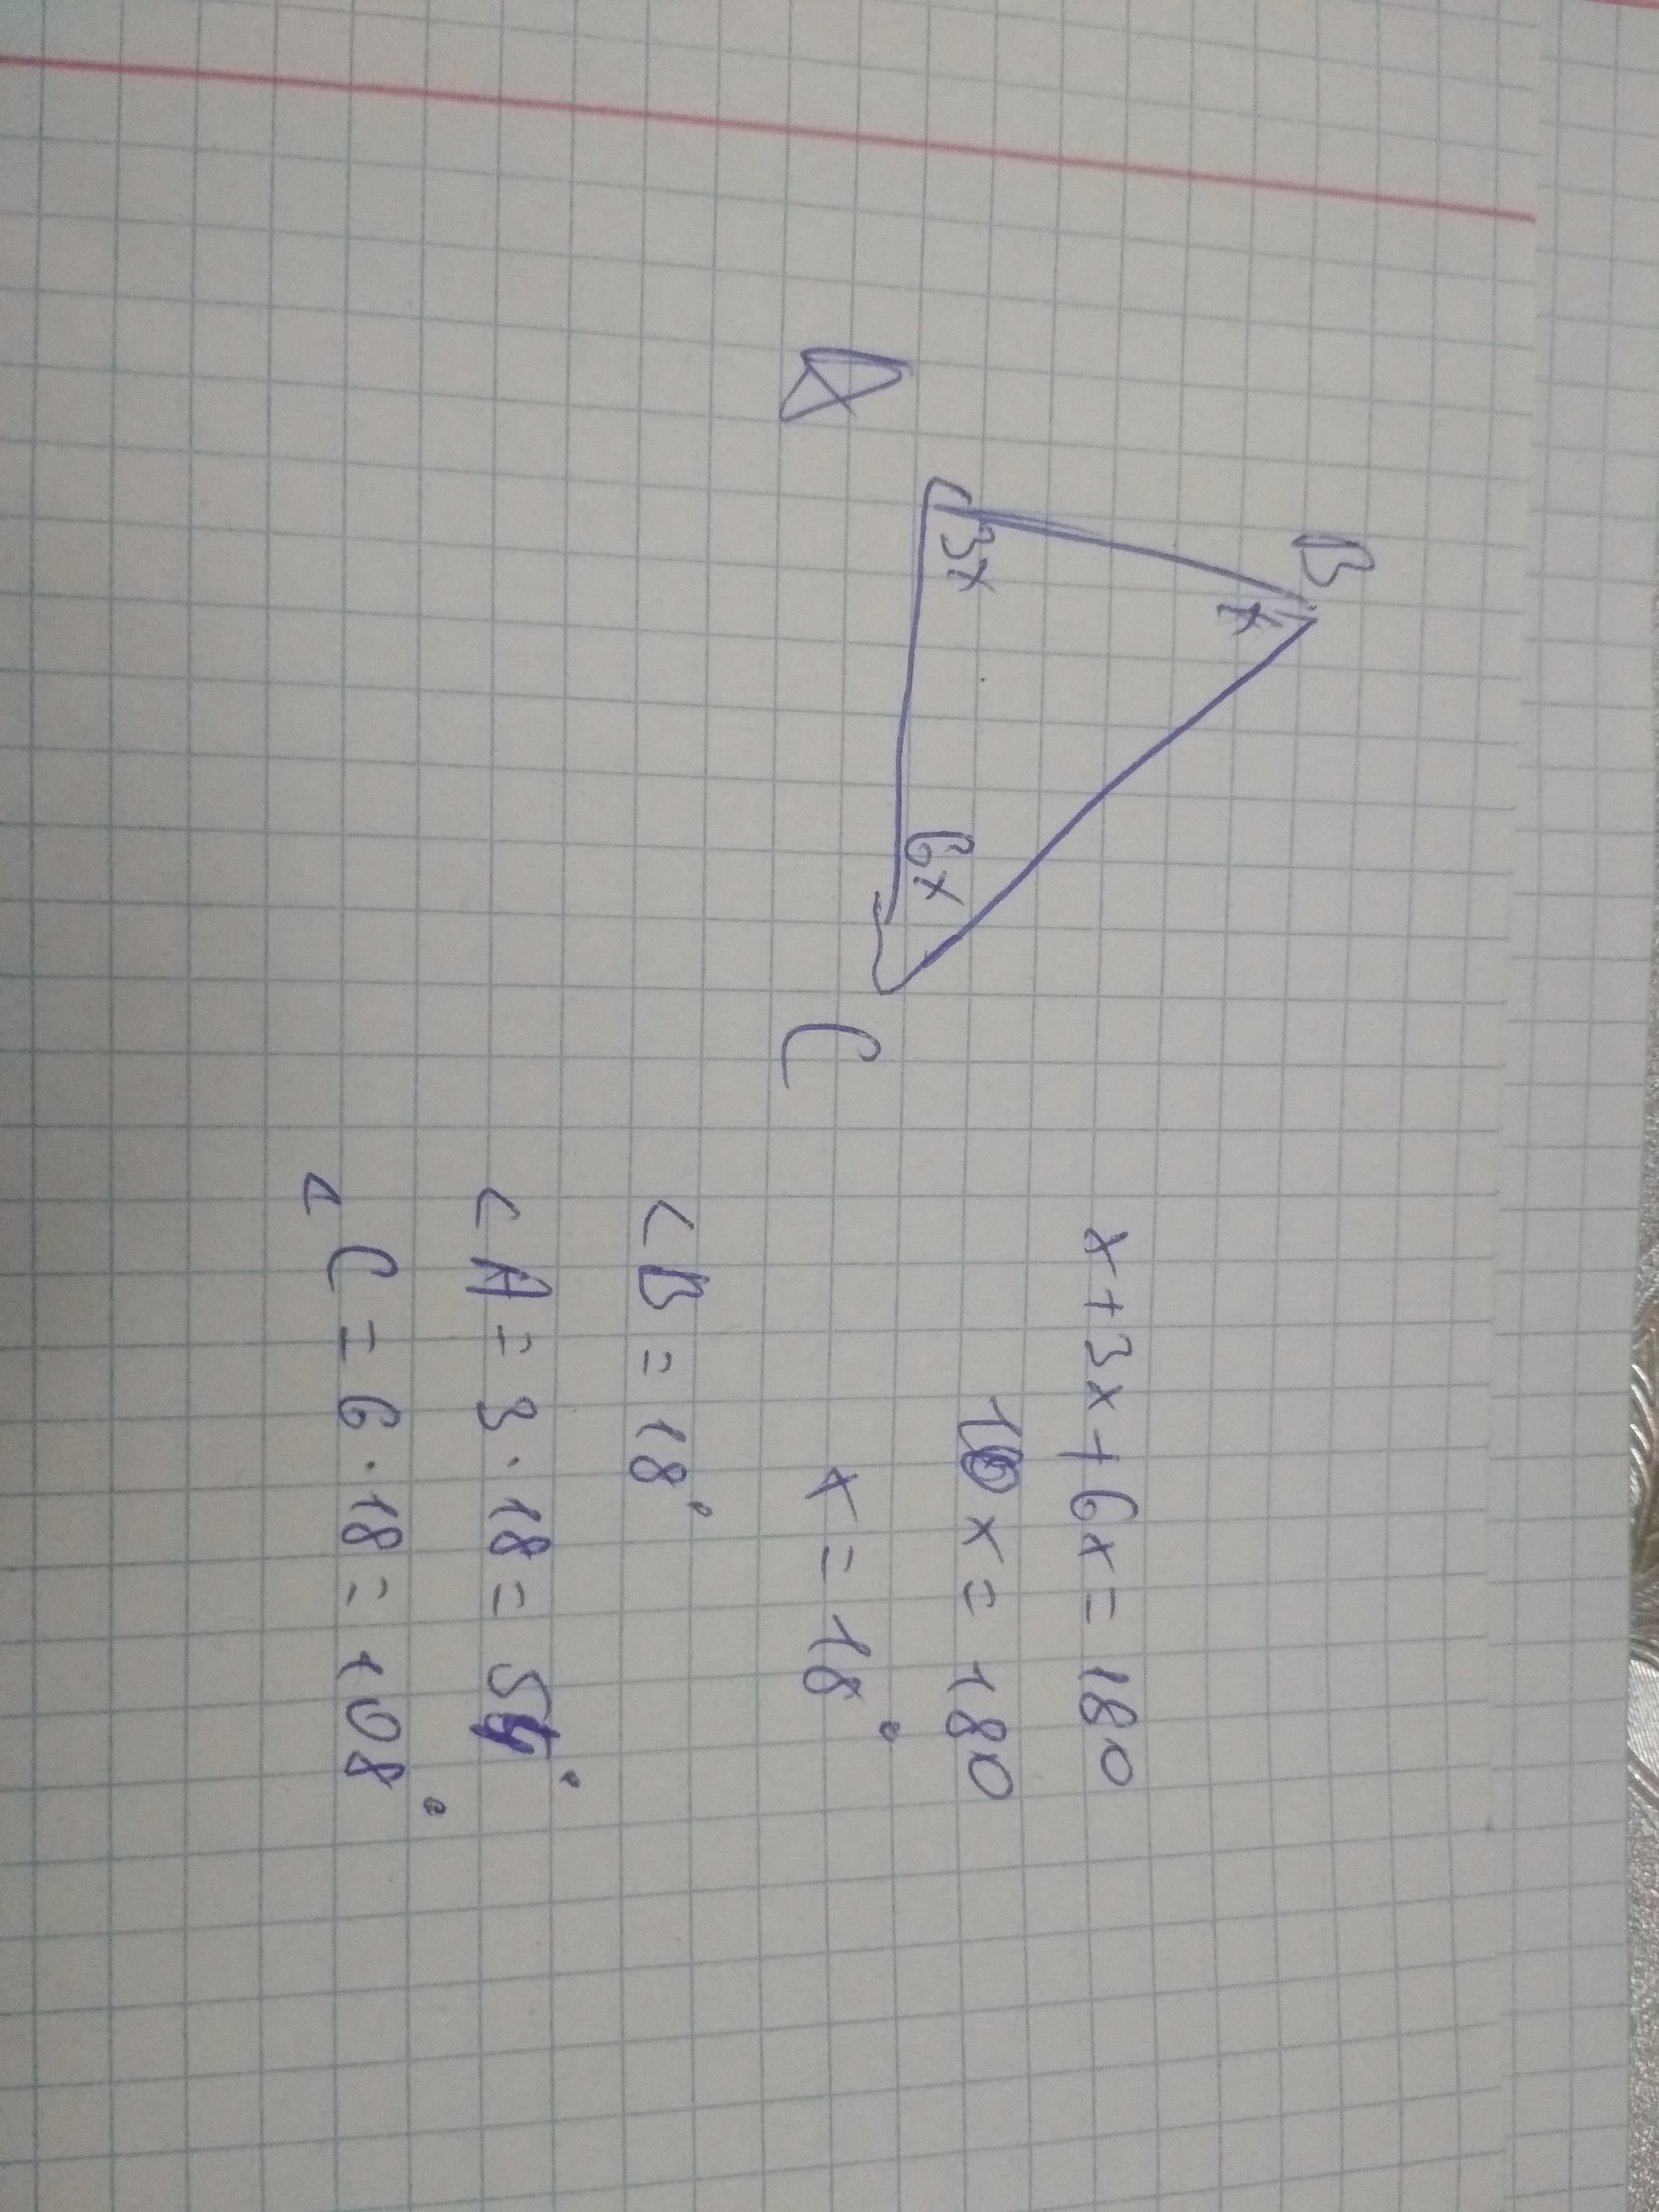 B
x
3x
6x
A
C
x+3x+6x=180
10x=180
x=18°
<B=18°
<A=3·18=54°
<C=6·18=108°